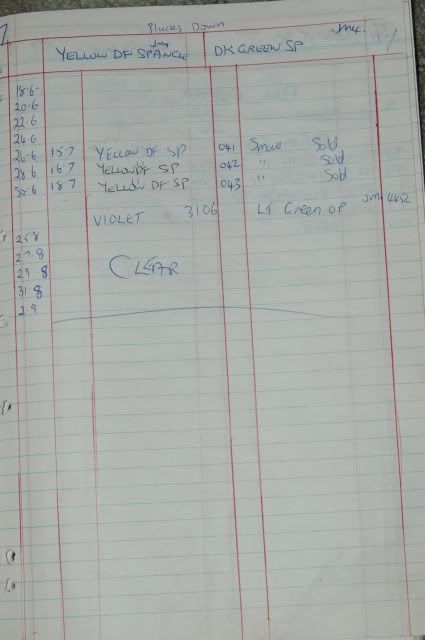 7 Plucks Down
YELLOW DF SPANGLE DK GREEN SP
18.6
20.6
22.6
24.6
26.6 15.7 YELLOW DF SP 041 Small Sold
28.6 16.7 YELLOW DF SP 042 " Sold
30.6 18.7 YELLOW DF SP 043 " Sold
VIOLET 3106 LT Green OP
25.8
27.8
29.8 CLEAR
31.8
2.9